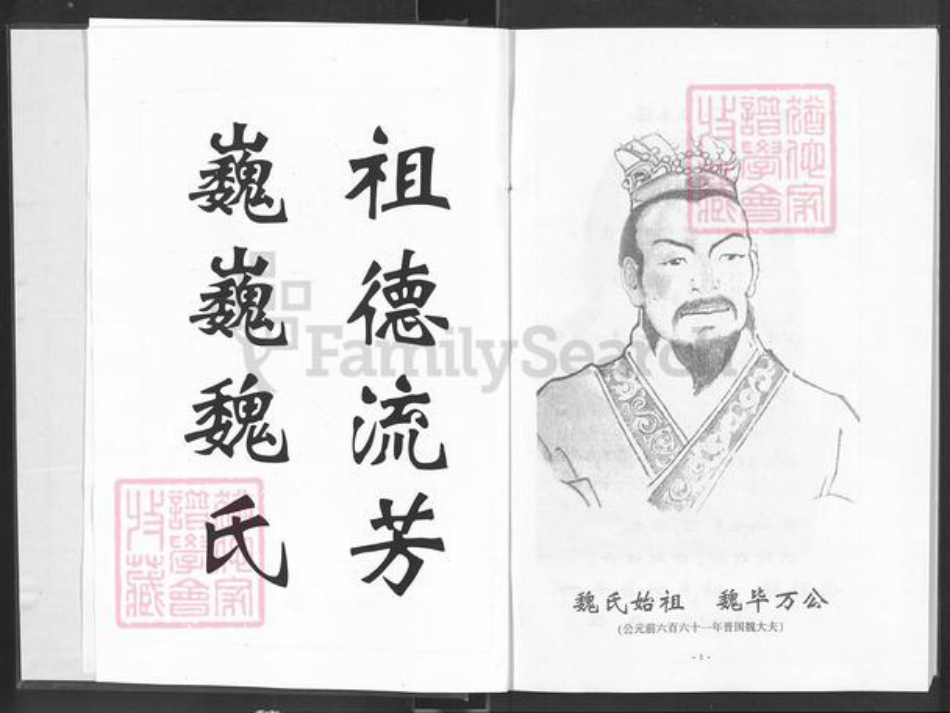 祖德流芳
巍巍魏氏
魏氏始祖 魏毕万公
(公元前六百六十一年晋国魏大夫)
- 1 -
FamilySearch